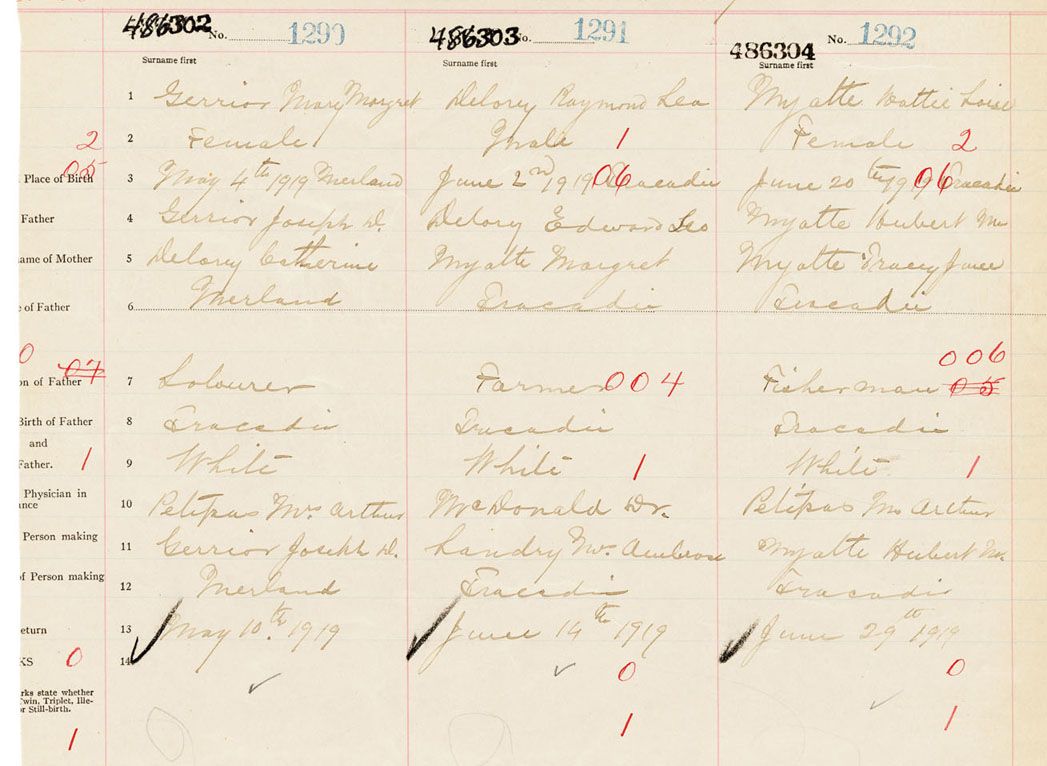 486302 No. 1290 486303 No. 1291 486304 No. 1292
Surname first Surname first Surname first
1 Gerrior Mary Margret Delorey Raymond Leo Myatte Hattie Loise
2 2 Female Male 1 Female 2
05
Place of Birth 3 May 4th 1919 Merland June 2nd 1919 06 Tracadie June 20th 1919 06 Tracadie
Father 4 Gerrior Joseph D. Delory Edward Leo Myatte Hubert Mr
ame of Mother 5 Delorey Catherine Myatte Margret Myatte Tracey June
e of Father 6 Merland Tracadie Tracadie
0 006
07
on of Father 7 Labourer Farmer 004 Fisherman 05
Birth of Father 8 Tracadie Tracadie Tracadie
and
Father. 1 9 White White 1 White 1
Physician in
ance 10 Petipas Mrs Arthur McDonald Dr. Petipas Mrs Arthur
Person making
11 Gerrior Joseph D. Landry Mrs. Ambrose Myatte Hubert Mr.
of Person making
12 Merland Tracadie Tracadie
eturn 13 May 10th 1919 June 14th 1919 June 29th 1919
KS 0 14 0 0
rks state whether
Twin, Triplet, Ille-
or Still-birth.
1 1 1